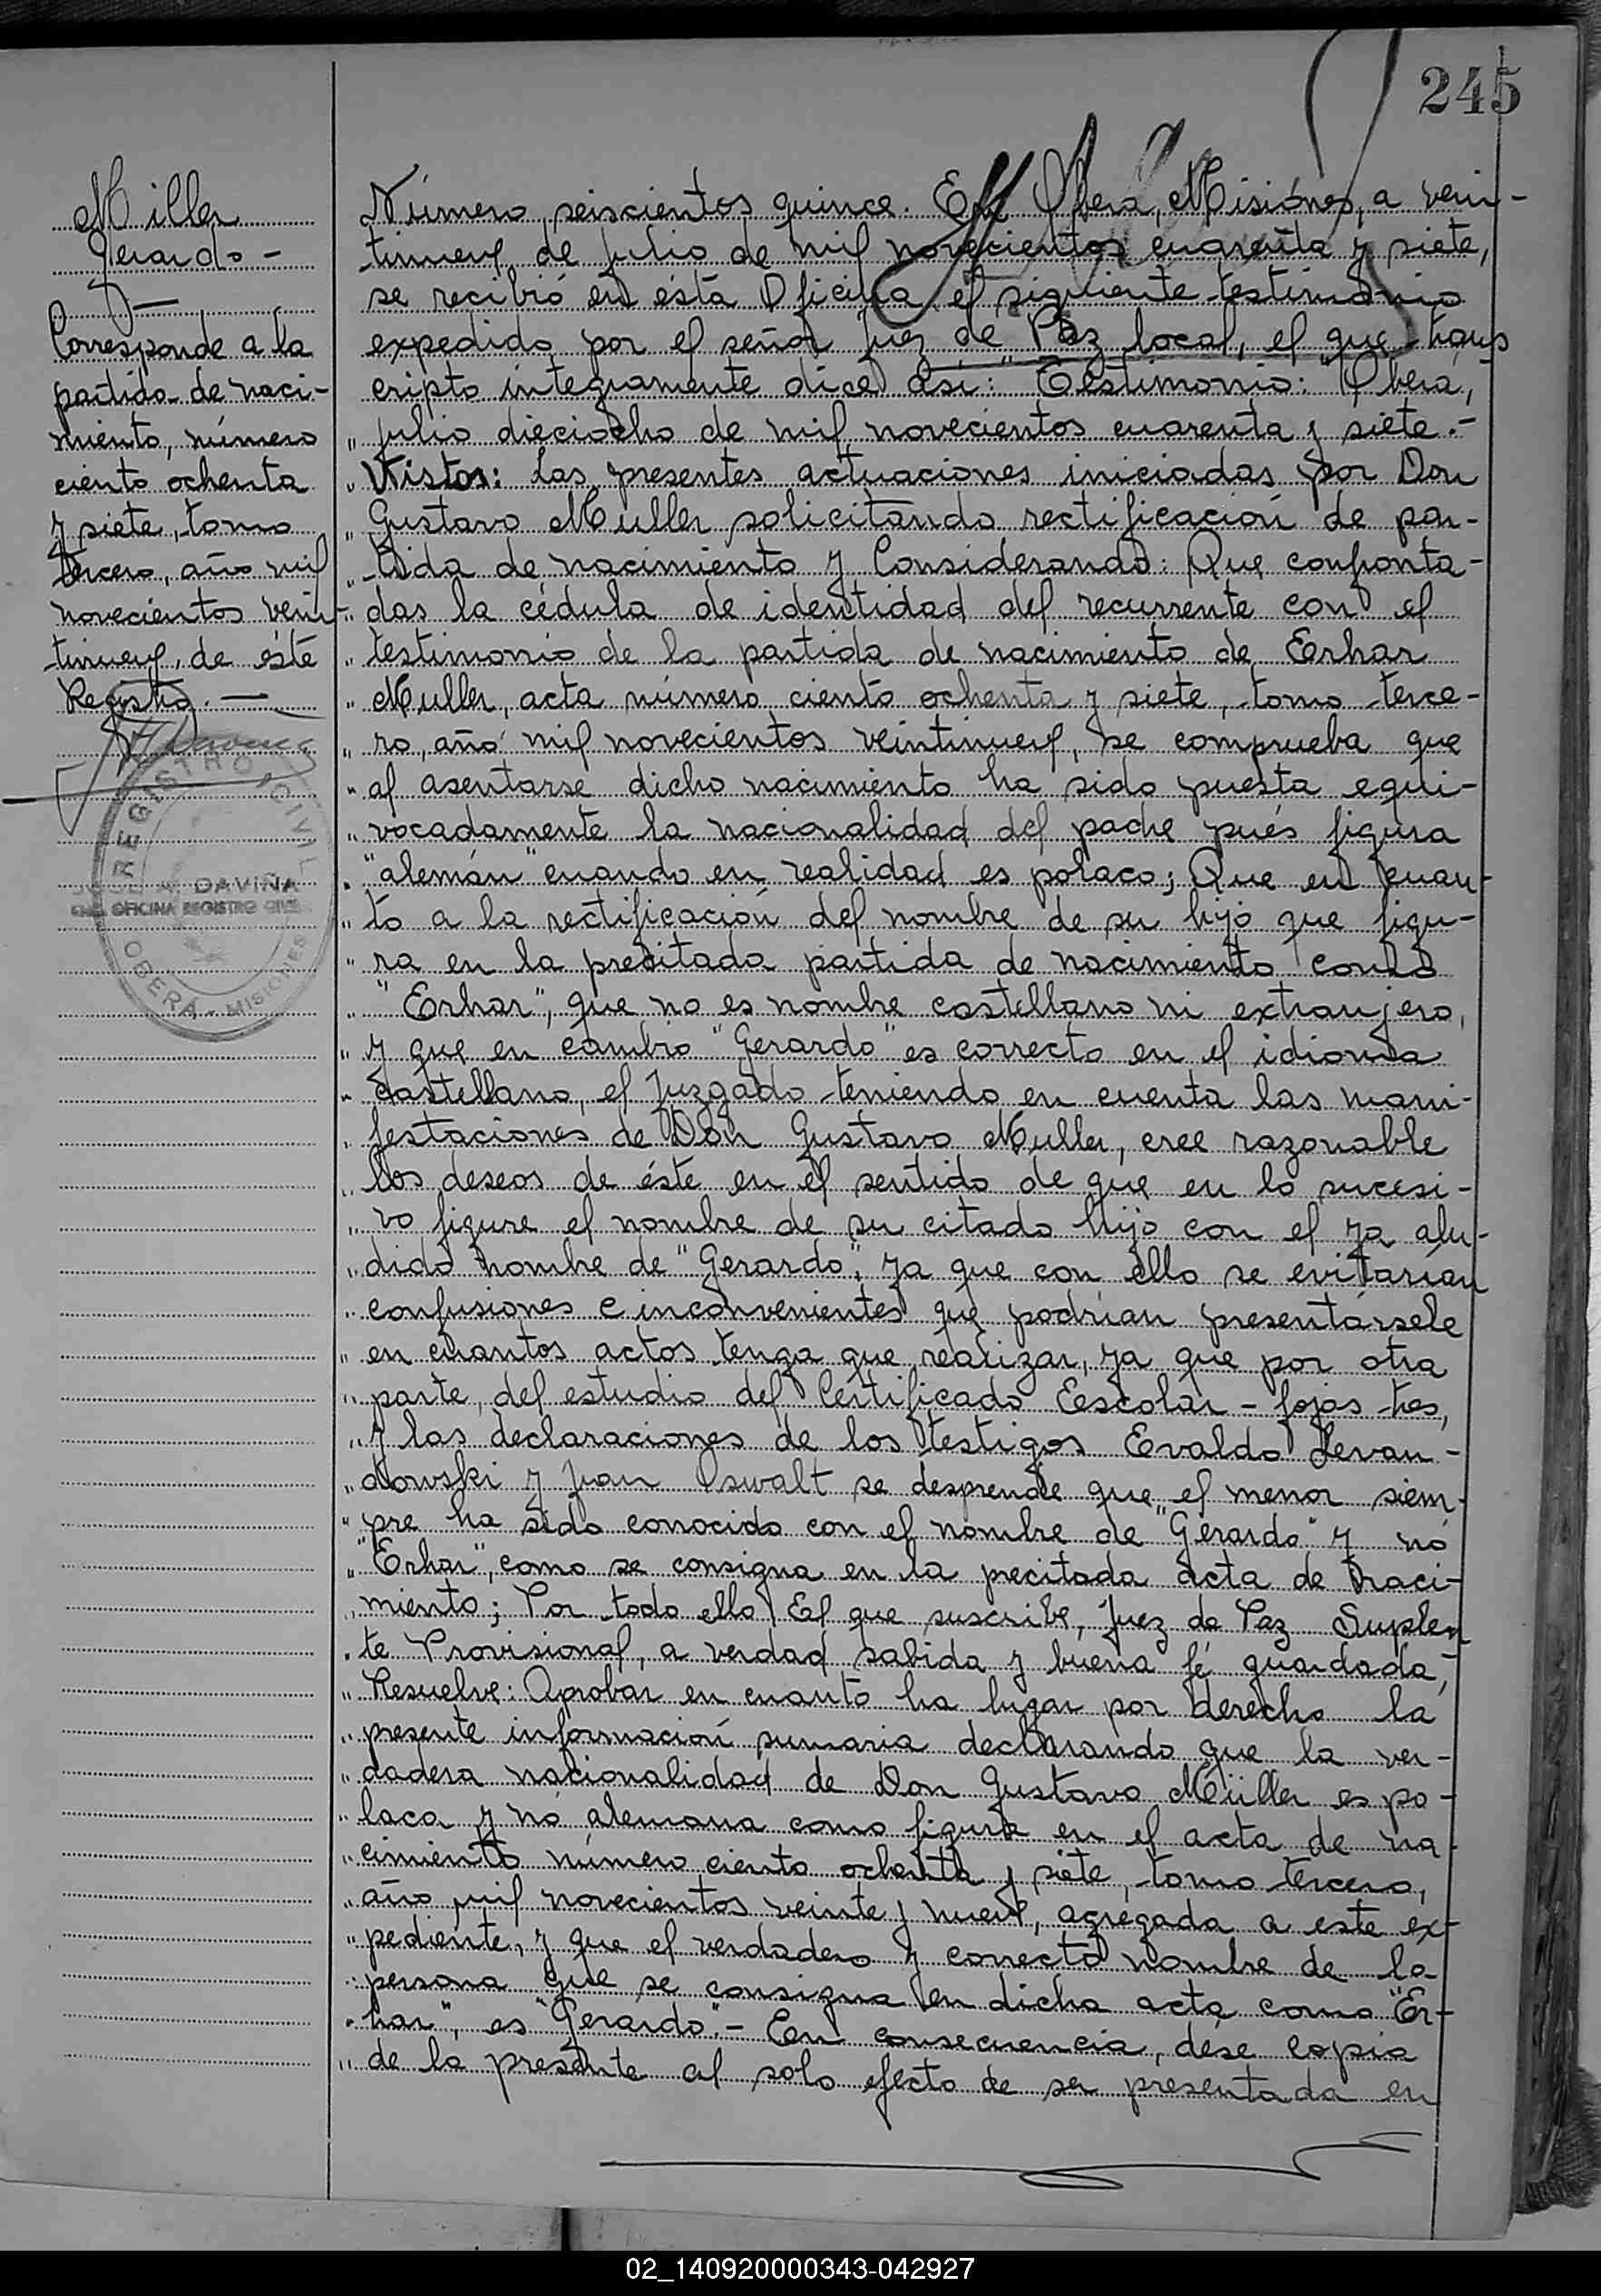 245
Miller
Gerardo -
Corresponde a la
partida de naci-
miento, número
ciento ochenta
y siete, tomo
tercero, año mil
novecientos vein-
tinueve, de éste
Registro. —
REGISTRO CIVIL
DAVIÑA
ENC. OFICINA REGISTRO CIVIL
OBERÁ - MISIONES
Número seiscientos quince. En Oberá, Misiónes, a vein-
tinueve de julio de mil novecientos cuarenta y siete,
se recibió en ésta Oficina el siguiente testimonio
expedido por el señor Juez de Paz local, el que trans
cripto íntegramente dice así: "Testimonio: "Oberá,
" julio dieciocho de mil novecientos cuarenta y siete.-
" Vistos: Las presentes actuaciones iniciadas por Don
" Gustavo Muller solicitando rectificación de par-
" tida de nacimiento y Considerando: Que confronta-
" das la cédula de identidad del recurrente con el
" testimonio de la partida de nacimiento de Erhar
" Muller, acta número ciento ochenta y siete, tomo terce-
" ro, año mil novecientos veintinueve, se comprueba que
" al asentarse dicho nacimiento ha sido puesta equi-
" vocadamente la nacionalidad del padre pués figura
" "alemán" cuando en realidad es polaco; Que en cuan-
" to a la rectificación del nombre de su hijo que figu-
" ra en la precitada partida de nacimiento como
" "Erhar", que no es nombre castellano ni extranjero,
" y que en cambio "Gerardo" es correcto en el idioma
" castellano, el Juzgado teniendo en cuenta las mani-
" festaciones de Don Gustavo Muller, cree razonable
" los deseos de éste en el sentido de que en lo sucesi-
" vo figure el nombre de su citado hijo con el ya alu-
" dido nombre de "Gerardo", ya que con ello se evitarían
" confusiones e inconvenientes que podrían presentársele
" en cuantos actos tenga que realizar, ya que por otra
" parte, del estudio del Certificado Escolar - fojas tres,
" y las declaraciones de los testigos Evaldo Levan-
" dowski y Juan Oswalt se desprende que el menor siem-
" pre ha sido conocido con el nombre de "Gerardo" y nó
" "Erhar", como se consigna en la precitada acta de naci-
" miento; Por todo ello El que suscribe, Juez de Paz Suplen
" te Provisional, a verdad sabida y buena fé guardada,-
" Resuelve: Aprobar en cuanto ha lugar por derecho la
" presente información sumaria declarando que la ver-
" dadera nacionalidad de Don Gustavo Müller es po-
" laca y nó alemana como figura en el acta de na-
" cimiento número ciento ochenta y siete, tomo tercero,
" año mil novecientos veinte y nueve, agregada a este ex-
" pediente, y que el verdadero y correcto nombre de la
" persona que se consigna en dicha acta como "Er-
" har", es "Gerardo".- En consecuencia, dése copia
" de la presente al solo efecto de ser presentada en
02_140920000343-042927